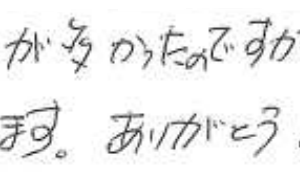 が多かったのですが
ます。ありがとう